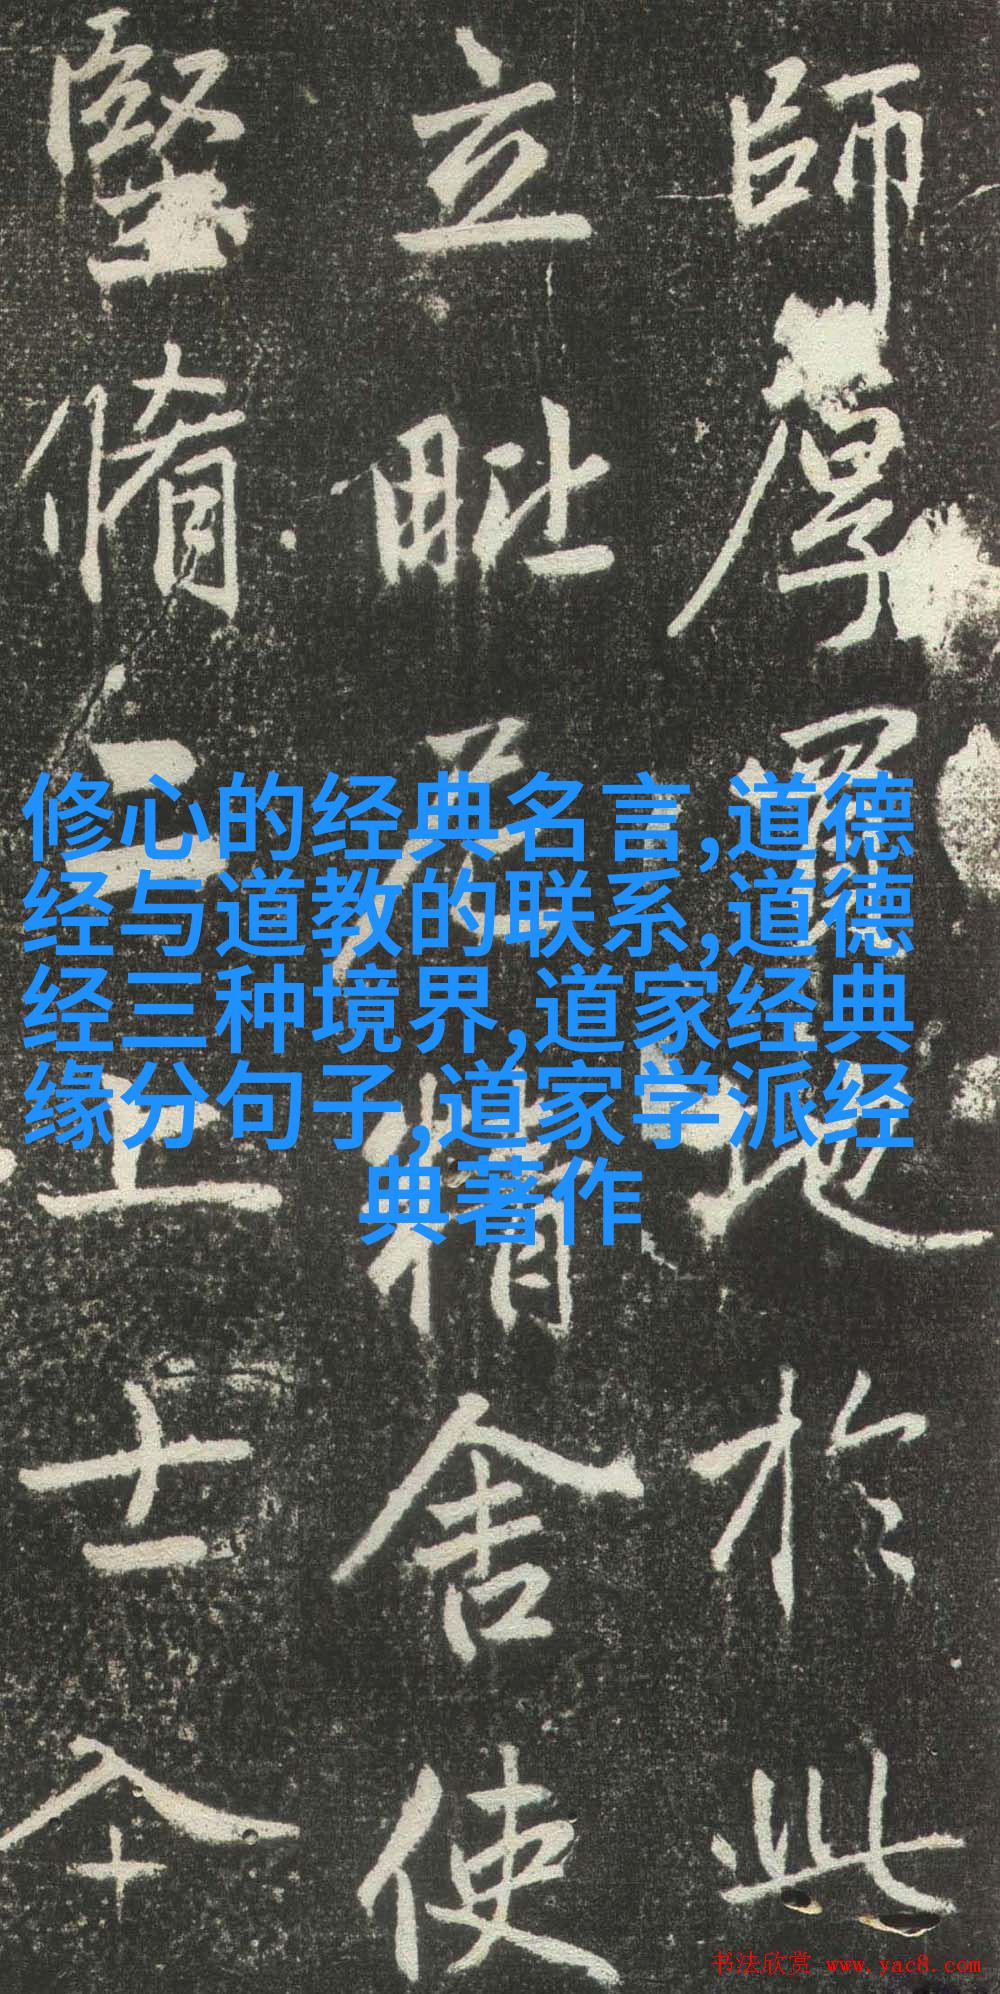 師厚買地於此
立毗尼精舍使
堅脩上士
修心的经典名言,道德
经与道教的联系,道德
经三种境界,道家经典
缘分句子,道家学派经
典著作
书法欣赏 www.yac8.com